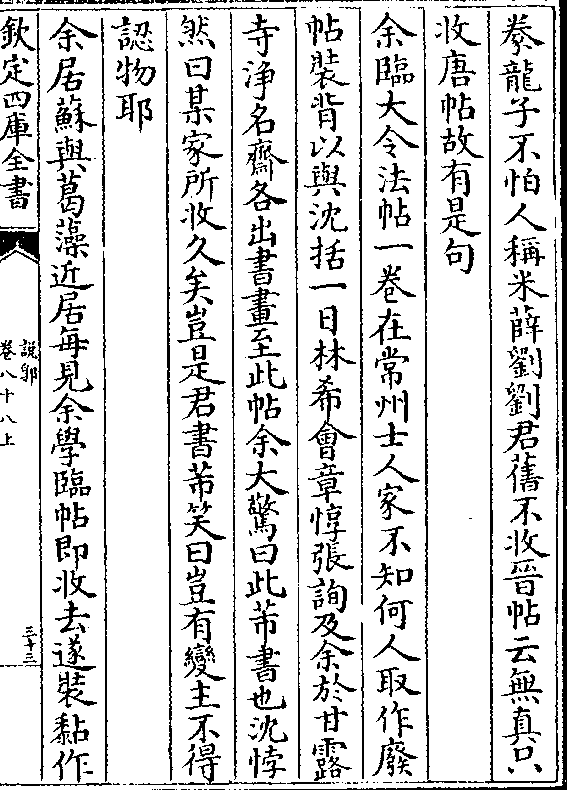 拳龍子不怕人稱米薛劉劉君舊不收晉帖云無真只
收唐帖故有是句
余臨大令法帖一卷在常州士人家不知何人取作廢
帖裝背以與沈括一日林希會章惇張詢及余於甘露
寺淨名齋各出書畫至此帖余大驚曰此芾書也沈悖
然曰某家所收久矣豈是君書芾笑曰豈有變主不得
認物耶
余居蘇與葛藻近居每見余學臨帖即收去遂裝黏作
欽定四庫全書
說郛
卷八十八上
三十三